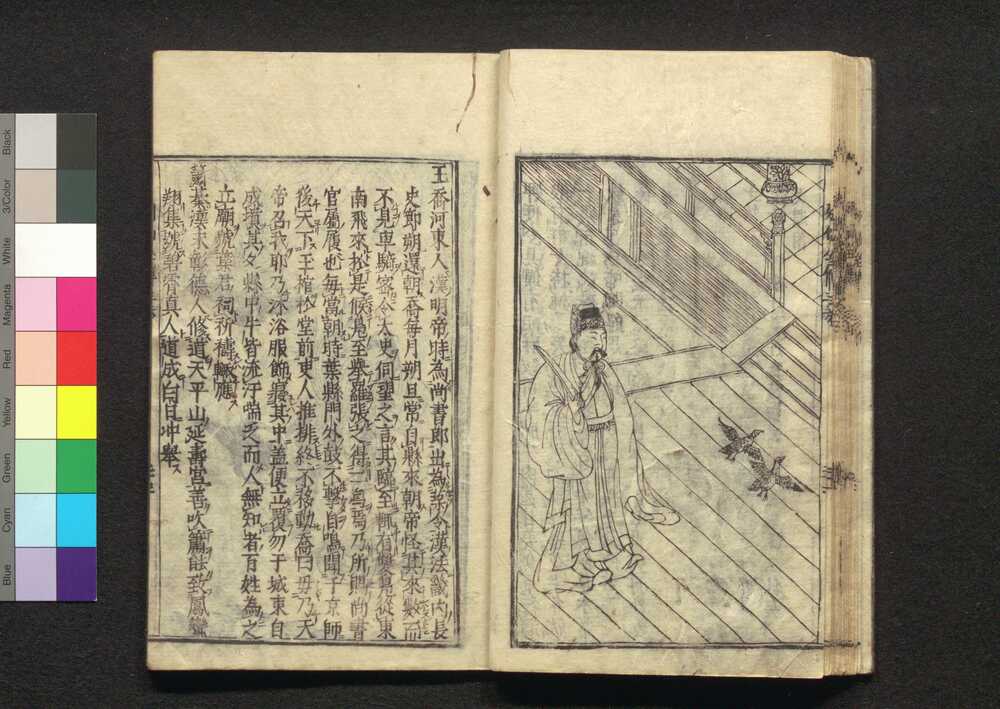 王喬河東人漢明帝時為尚書郎出為葉令漢法畿内長
史節朔還朝喬每月朔旦常自縣來朝帝怪其來數而
不見車騎密令太史伺望之言其臨至輒有雙鳧從東
南飛來於是候鳧至舉羅張之得一舃焉乃所賜尚書
官屬履也每當朝時葉縣門外鼓不擊自鳴聞于京師
後天下王棺於堂前吏人推排終不移動喬曰毋乃天
帝召我耶乃沐浴服飾寢其中盖便立覆勿于城東自
成墳其夕縣中牛皆流汗喘乏而人無知者百姓為之
立廟號葉君祠祈禱輒應
基漢末彰德人修道天平山延壽宮善吹簫能致鳳鸞
翔集號碧霄真人道成白日冲舉
Black
3/Color
White
Magenta
Red
Yellow
Green
Cyan
Blue